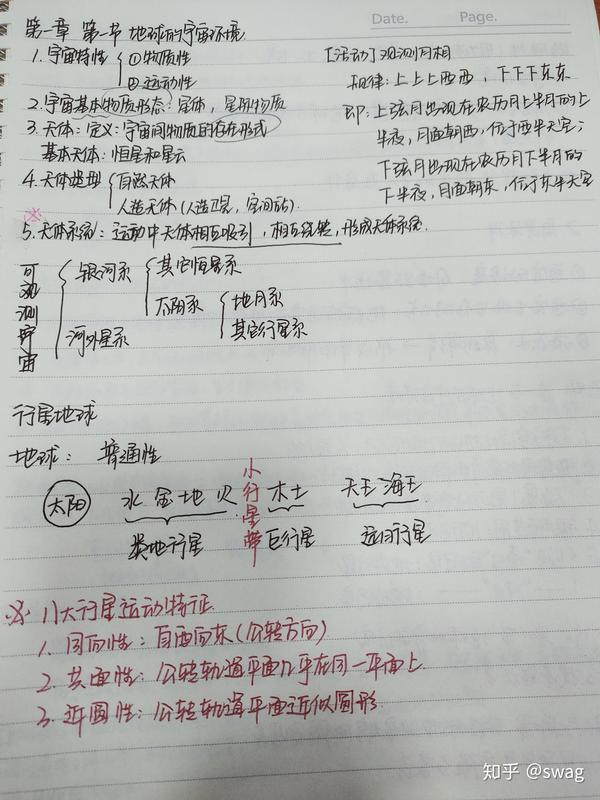 Date.
Page.
第一章 第一节 地球的宇宙环境
1. 宇宙特性 ①物质性
②运动性
2. 宇宙基本物质形态: 星体, 星际物质
3. 天体: 定义: 宇宙间物质的存在形式
基本天体: 恒星和星云
4. 天体类型 自然天体
人造天体(人造卫星, 空间站).
※
5. 天体系统: 运动中天体相互吸引, 相互绕转, 形成天体系统.
可观测宇宙
银河系
其它恒星系
太阳系
地月系
其它行星系
河外星系
[活动] 观测月相
规律: 上上上西西, 下下下东东
即: 上弦月出现在农历月上半月的上
半夜, 月面朝西, 位于西半天空;
下弦月出现在农历月下半月的
下半夜, 月面朝东, 位于东半天空
行星地球
地球: 普通性
太阳 水 金 地 火 小行星带 木土 天王 海王
类地行星 巨行星 远日行星
※ 八大行星运动特征.
1. 同向性: 自西向东(公转方向)
2. 共面性: 公转轨道平面几乎在同一平面上
3. 近圆性: 公转轨道平面近似圆形.
知乎 @swag